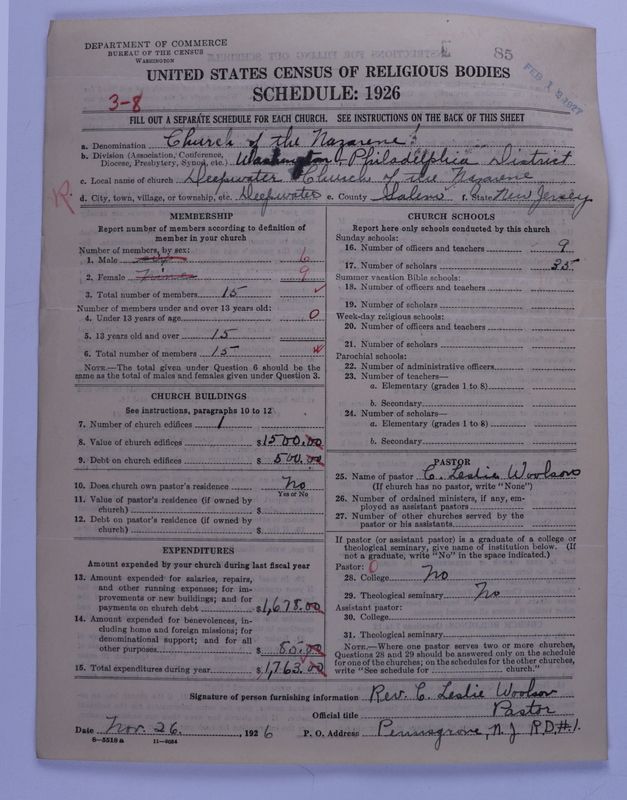 DEPARTMENT OF COMMERCE
BUREAU OF THE CENSUS
WASHINGTON
85
FEB 12 1927
UNITED STATES CENSUS OF RELIGIOUS BODIES
SCHEDULE: 1926
3-8
FILL OUT A SEPARATE SCHEDULE FOR EACH CHURCH. SEE INSTRUCTIONS ON THE BACK OF THIS SHEET
a. Denomination Church of the Nazarene
b. Division (Association, Conference, Diocese, Presbytery, Synod, etc.) Washington Philadelphia District
c. Local name of church Deepwater Church of the Nazarene
d. City, town, village, or township, etc. Deepwater e. County Salem f. State New Jersey
MEMBERSHIP
Report number of members according to definition of
member in your church
Number of members, by sex:
1. Male six 6
2. Female nine 9
3. Total number of members 15
Number of members under and over 13 years old:
4. Under 13 years of age 0
5. 13 years old and over 15
6. Total number of members 15
NOTE.—The total given under Question 6 should be the
same as the total of males and females given under Question 3.
CHURCH BUILDINGS
See instructions, paragraphs 10 to 12
7. Number of church edifices 1
8. Value of church edifices $1500.00
9. Debt on church edifices $500.00
10. Does church own pastor's residence No
Yes or No
11. Value of pastor's residence (if owned by
church) $
12. Debt on pastor's residence (if owned by
church) $
EXPENDITURES
Amount expended by your church during last fiscal year
13. Amount expended for salaries, repairs,
and other running expenses; for im-
provements or new buildings; and for
payments on church debt $1,678.00
14. Amount expended for benevolences, in-
cluding home and foreign missions; for
denominational support; and for all
other purposes $85.00
15. Total expenditures during year $1,763.00
CHURCH SCHOOLS
Report here only schools conducted by this church
Sunday schools:
16. Number of officers and teachers 9
17. Number of scholars 35
Summer vacation Bible schools:
18. Number of officers and teachers
19. Number of scholars
Week-day religious schools:
20. Number of officers and teachers
21. Number of scholars
Parochial schools:
22. Number of administrative officers
23. Number of teachers—
a. Elementary (grades 1 to 8)
b. Secondary
24. Number of scholars—
a. Elementary (grades 1 to 8)
b. Secondary
PASTOR
25. Name of pastor C. Leslie Woolson
(If church has no pastor, write "None")
26. Number of ordained ministers, if any, em-
ployed as assistant pastors
27. Number of other churches served by the
pastor or his assistants
If pastor (or assistant pastor) is a graduate of a college or
theological seminary, give name of institution below. (If
not a graduate, write "No" in the space indicated.)
Pastor: 0
28. College No
29. Theological seminary No
Assistant pastor:
30. College
31. Theological seminary
NOTE.—Where one pastor serves two or more churches,
Questions 28 and 29 should be answered only on the schedule
for one of the churches; on the schedules for the other churches,
write "See schedule for church."
Signature of person furnishing information Rev. C. Leslie Woolson
Official title Pastor
Date Nov. 26, 1926 P. O. Address Pennsgrove, N.J. R.D.#1.
8—5318 a 11—9034